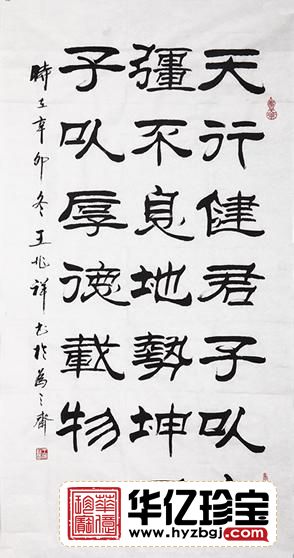 天行健君子以
彊不息地勢坤
子以厚德載物
時在辛卯冬王兆祥书於
华亿珍宝
www.hyzbgj.com